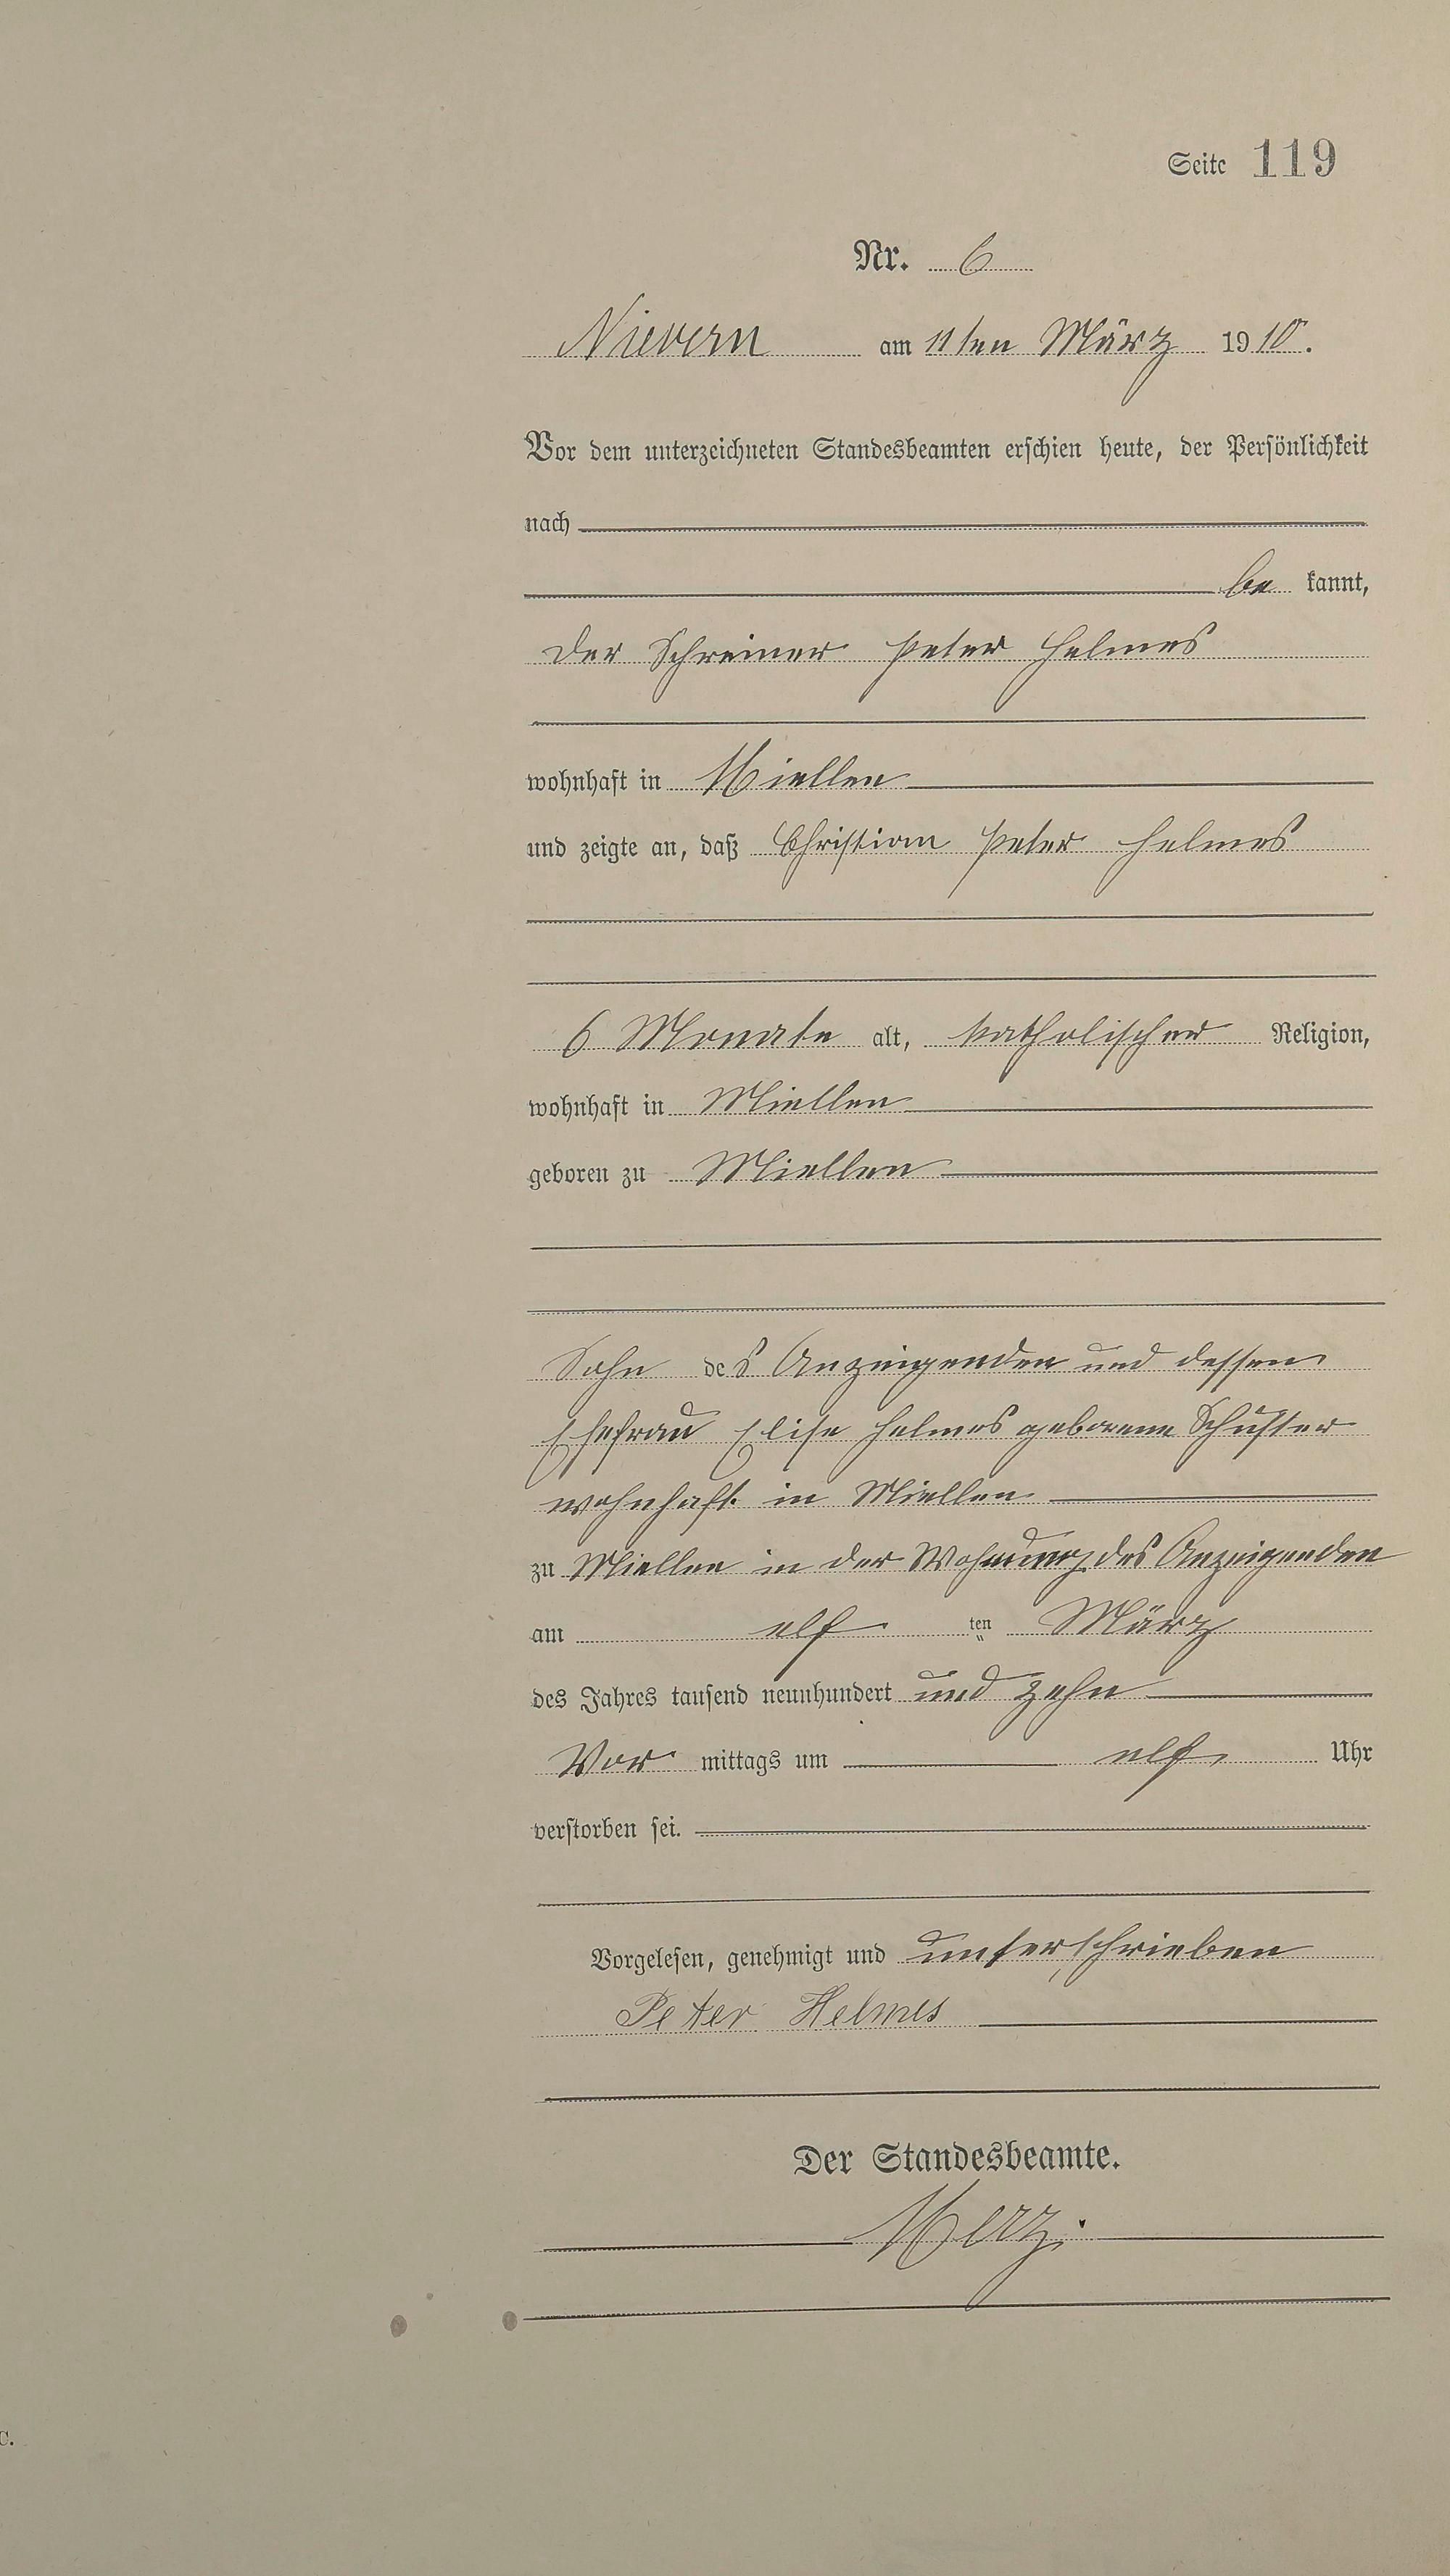 Seite 119
Nr. 6
Nievern am 11ten März 1910.
Vor dem unterzeichneten Standesbeamten erschien heute, der Persönlichkeit
nach
be kannt,
der Schreiner Peter Helmes
wohnhaft in Miellen
und zeigte an, daß Christian Peter Helmes
6 Monate alt, katholischer Religion,
wohnhaft in Miellen
geboren zu Miellen
Sohn des Anzeigenden und dessen
Ehefrau Elise Helmes geborene Schuster
wohnhaft in Miellen
zu Miellen in der Wohnung des Anzeigenden
am elf ten März
des Jahres tausend neunhundert und zehn
Vor mittags um elf Uhr
verstorben sei.
Vorgelesen, genehmigt und unterschrieben
Peter Helmes
Der Standesbeamte.
Merz.
c.